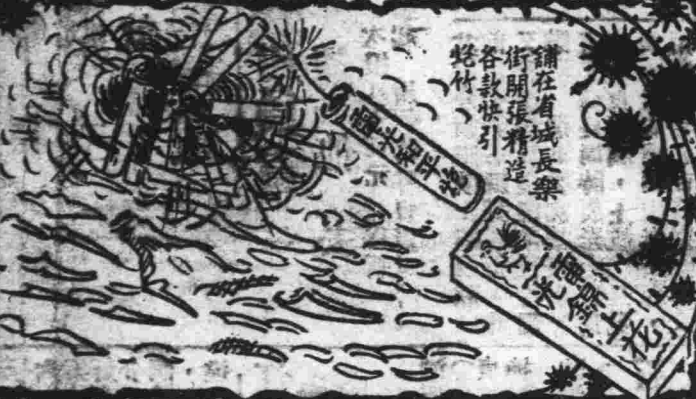 舖在省城長樂
街開張精造
各款快引
炮竹
電光和平炮
電光
錦上花